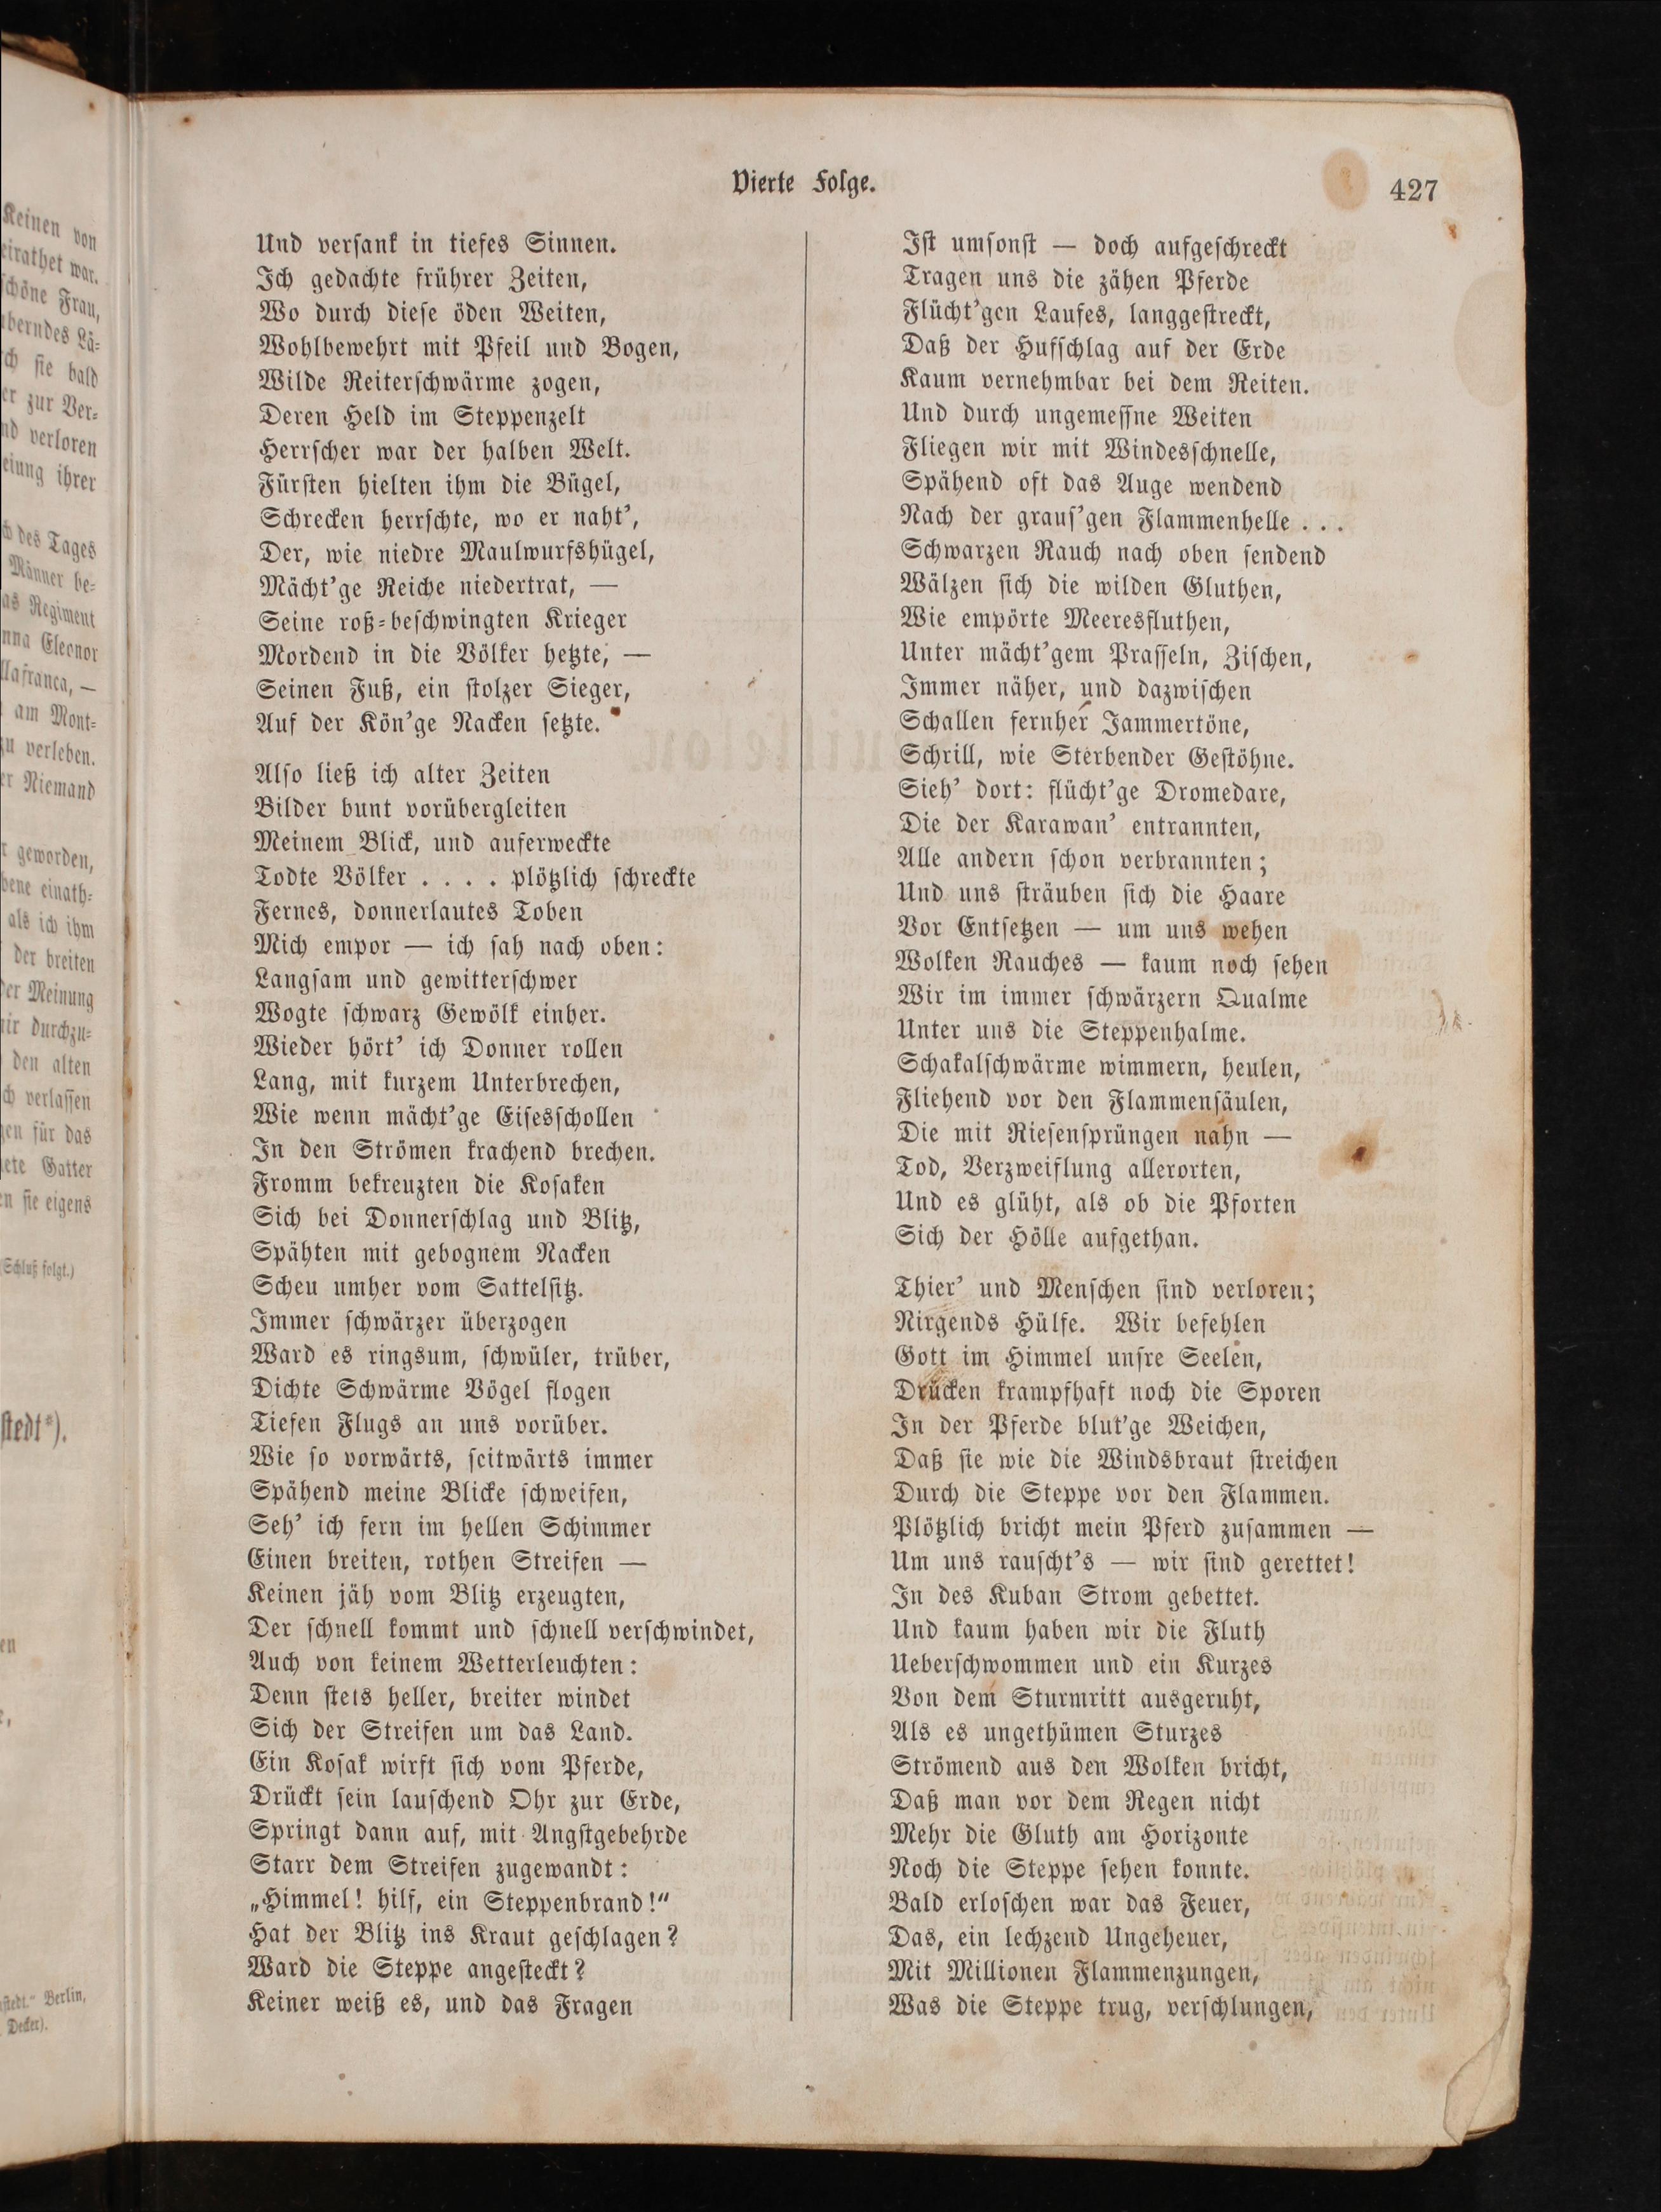 Vierte Folge.
427
Und versank in tiefes Sinnen.
Ich gedachte frührer Zeiten,
Wo durch diese öden Weiten,
Wohlbewehrt mit Pfeil und Bogen,
Wilde Reiterschwärme zogen,
Deren Held im Steppenzelt
Herrscher war der halben Welt.
Fürsten hielten ihm die Bügel,
Schrecken herrschte, wo er naht',
Der, wie niedre Maulwurfshügel,
Mächt'ge Reiche niedertrat, —
Seine roß-beschwingten Krieger
Mordend in die Völker hetzte, —
Seinen Fuß, ein stolzer Sieger,
Auf der Kön'ge Nacken setzte.
Also ließ ich alter Zeiten
Bilder bunt vorübergleiten
Meinem Blick, und auferweckte
Todte Völker . . . . plötzlich schreckte
Fernes, donnerlautes Toben
Mich empor — ich sah nach oben:
Langsam und gewitterschwer
Wogte schwarz Gewölk einher.
Wieder hört' ich Donner rollen
Lang, mit kurzem Unterbrechen,
Wie wenn mächt'ge Eisesschollen
In den Strömen krachend brechen.
Fromm bekreuzten die Kosaken
Sich bei Donnerschlag und Blitz,
Spähten mit gebognem Nacken
Scheu umher vom Sattelsitz.
Immer schwärzer überzogen
Ward es ringsum, schwüler, trüber,
Dichte Schwärme Vögel flogen
Tiefen Flugs an uns vorüber.
Wie so vorwärts, seitwärts immer
Spähend meine Blicke schweifen,
Seh' ich fern im hellen Schimmer
Einen breiten, rothen Streifen —
Keinen jäh vom Blitz erzeugten,
Der schnell kommt und schnell verschwindet,
Auch von keinem Wetterleuchten:
Denn stets heller, breiter windet
Sich der Streifen um das Land.
Ein Kosak wirft sich vom Pferde,
Drückt sein lauschend Ohr zur Erde,
Springt dann auf, mit Angstgebehrde
Starr dem Streifen zugewandt:
„Himmel! hilf, ein Steppenbrand!“
Hat der Blitz ins Kraut geschlagen?
Ward die Steppe angesteckt?
Keiner weiß es, und das Fragen
Ist umsonst — doch aufgeschreckt
Tragen uns die zähen Pferde
Flücht'gen Laufes, langgestreckt,
Daß der Hufschlag auf der Erde
Kaum vernehmbar bei dem Reiten.
Und durch ungemessne Weiten
Fliegen wir mit Windesschnelle,
Spähend oft das Auge wendend
Nach der graus'gen Flammenhelle . . .
Schwarzen Rauch nach oben sendend
Wälzen sich die wilden Gluthen,
Wie empörte Meeresfluthen,
Unter mächt'gem Prasseln, Zischen,
Immer näher, und dazwischen
Schallen fernher Jammertöne,
Schrill, wie Sterbender Gestöhne.
Sieh' dort: flücht'ge Dromedare,
Die der Karawan' entrannten,
Alle andern schon verbrannten;
Und uns sträuben sich die Haare
Vor Entsetzen — um uns wehen
Wolken Rauches — kaum noch sehen
Wir im immer schwärzern Qualme
Unter uns die Steppenhalme.
Schakalschwärme wimmern, heulen,
Fliehend vor den Flammensäulen,
Die mit Riesensprüngen nahn —
Tod, Verzweiflung allerorten,
Und es glüht, als ob die Pforten
Sich der Hölle aufgethan.
Thier' und Menschen sind verloren;
Nirgends Hülfe. Wir befehlen
Gott im Himmel unsre Seelen,
Drücken krampfhaft noch die Sporen
In der Pferde blut'ge Weichen,
Daß sie wie die Windsbraut streichen
Durch die Steppe vor den Flammen.
Plötzlich bricht mein Pferd zusammen —
Um uns rauscht's — wir sind gerettet!
In des Kuban Strom gebettet.
Und kaum haben wir die Fluth
Ueberschwommen und ein Kurzes
Von dem Sturmritt ausgeruht,
Als es ungethümen Sturzes
Strömend aus den Wolken bricht,
Daß man vor dem Regen nicht
Mehr die Gluth am Horizonte
Noch die Steppe sehen konnte.
Bald erloschen war das Feuer,
Das, ein lechzend Ungeheuer,
Mit Millionen Flammenzungen,
Was die Steppe trug, verschlungen,